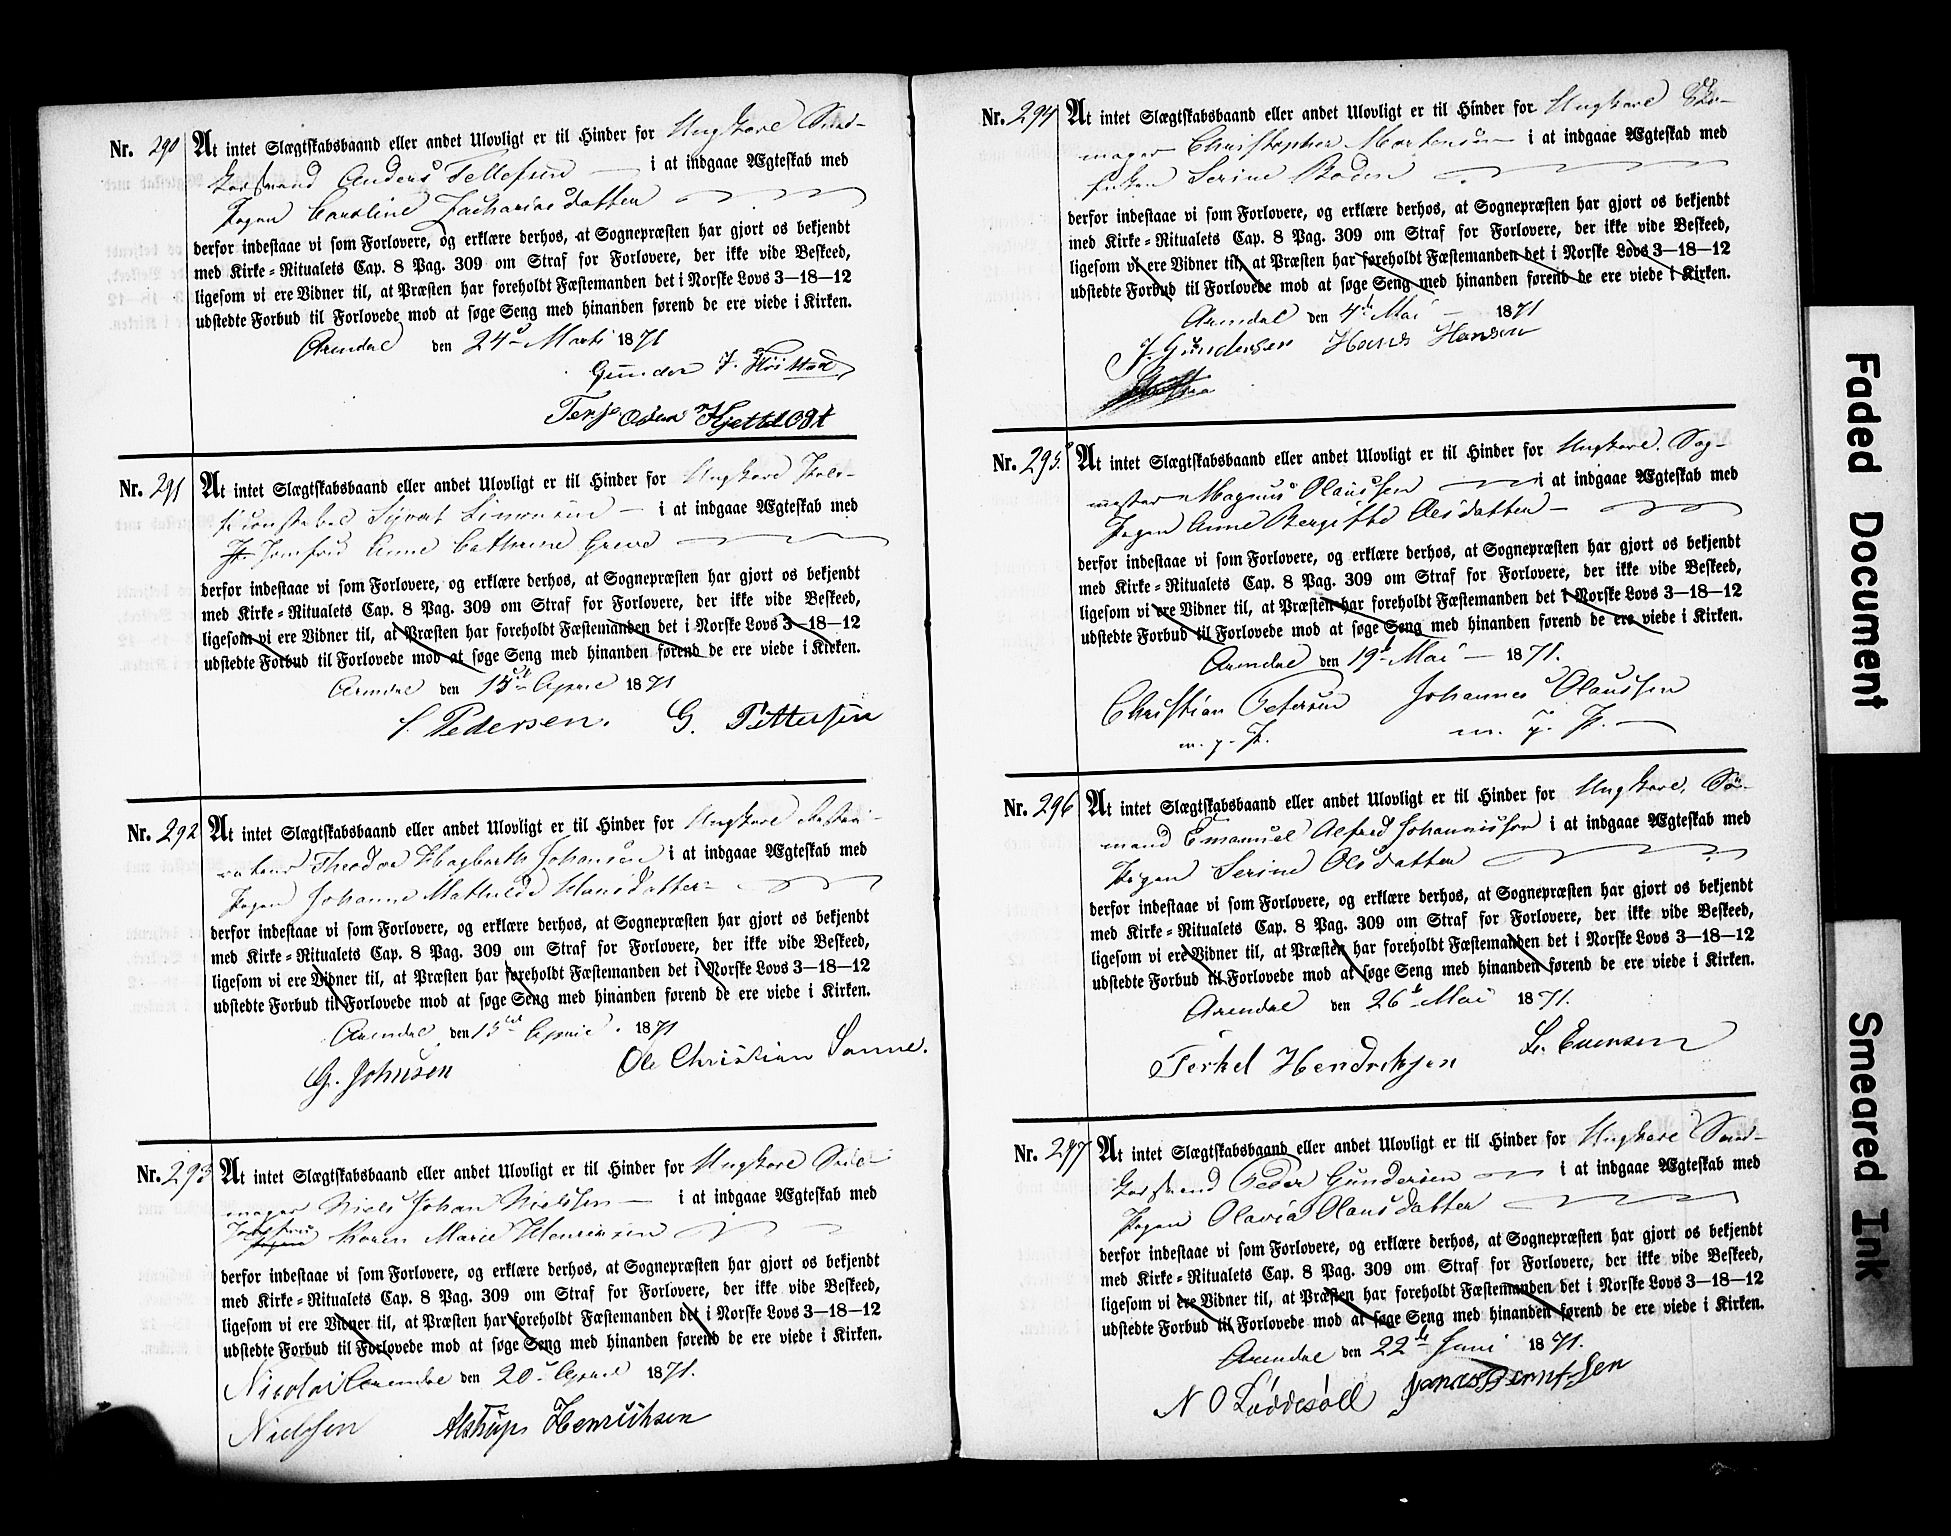 Nr. 290 At intet Slægtskabsbaand eller andet Ulovligt er til Hinder for Ungkarl
Anders Tellefsen — i at indgaae Ægteskab med
Pigen Caroline Zachariasdatter
derfor indestaae vi som Forlovere, og erklære derhos, at Sognepræsten har gjort os bekjendt
med Kirke-Ritualets Cap. 8 Pag. 309 om Straf for Forlovere, der ikke vide Beskeed,
ligesom vi ere Vidner til, at Præsten har foreholdt Fæstemanden det i Norske Lovs 3—18—12
udstedte Forbud til Forlovede mod at søge Seng med hinanden førend de ere viede i Kirken.
Arendal den 24de Marts 1871
Gunder J.
Terje Osen
Nr. 291 At intet Slægtskabsbaand eller andet Ulovligt er til Hinder for Ungkarl
Syvert Simonsen — i at indgaae Ægteskab med
Jomfru Anne Cathrine Greve
derfor indestaae vi som Forlovere, og erklære derhos, at Sognepræsten har gjort os bekjendt
med Kirke-Ritualets Cap. 8 Pag. 309 om Straf for Forlovere, der ikke vide Beskeed,
ligesom vi ere Vidner til, at Præsten har foreholdt Fæstemanden det i Norske Lovs 3—18—12
udstedte Forbud til Forlovede mod at søge Seng med hinanden førend de ere viede i Kirken.
Arendal den 15de April 1871
S. Pedersen. G. Pettersen
Nr. 292 At intet Slægtskabsbaand eller andet Ulovligt er til Hinder for Ungkarl
Theodor Hagbarth Johansen i at indgaae Ægteskab med
Pigen Johanne Mathilde Hansdatter
derfor indestaae vi som Forlovere, og erklære derhos, at Sognepræsten har gjort os bekjendt
med Kirke-Ritualets Cap. 8 Pag. 309 om Straf for Forlovere, der ikke vide Beskeed,
ligesom vi ere Vidner til, at Præsten har foreholdt Fæstemanden det i Norske Lovs 3—18—12
udstedte Forbud til Forlovede mod at søge Seng med hinanden førend de ere viede i Kirken.
Arendal den 15de April 1871
G. Johnsen Ole Christian Sanne.
Nr. 293 At intet Slægtskabsbaand eller andet Ulovligt er til Hinder for Ungkarl
mager Niels Johan Nielsen — i at indgaae Ægteskab med
Jomfru Karen Marie Henriksen
derfor indestaae vi som Forlovere, og erklære derhos, at Sognepræsten har gjort os bekjendt
med Kirke-Ritualets Cap. 8 Pag. 309 om Straf for Forlovere, der ikke vide Beskeed,
ligesom vi ere Vidner til, at Præsten har foreholdt Fæstemanden det i Norske Lovs 3—18—12
udstedte Forbud til Forlovede mod at søge Seng med hinanden førend de ere viede i Kirken.
Nicolai Arendal den 20de April 1871.
Nielsen Alstrup Henriksen
Nr. 294 At intet Slægtskabsbaand eller andet Ulovligt er til Hinder for Ungkarl Sko-
mager Christopher Mortensen — i at indgaae Ægteskab med
Enken Serine Boden
derfor indestaae vi som Forlovere, og erklære derhos, at Sognepræsten har gjort os bekjendt
med Kirke-Ritualets Cap. 8 Pag. 309 om Straf for Forlovere, der ikke vide Beskeed,
ligesom vi ere Vidner til, at Præsten har foreholdt Fæstemanden det i Norske Lovs 3—18—12
udstedte Forbud til Forlovede mod at søge Seng med hinanden førend de ere viede i Kirken.
Arendal den 4de Mai — 1871
J. Gundersen Hans Hansen
Nr. 295. At intet Slægtskabsbaand eller andet Ulovligt er til Hinder for Ungkarl. Sag-
mester Magnus Olaussen i at indgaae Ægteskab med
Pigen Anne Bergitte Olsdatter —
derfor indestaae vi som Forlovere, og erklære derhos, at Sognepræsten har gjort os bekjendt
med Kirke-Ritualets Cap. 8 Pag. 309 om Straf for Forlovere, der ikke vide Beskeed,
ligesom vi ere Vidner til, at Præsten har foreholdt Fæstemanden det i Norske Lovs 3—18—12
udstedte Forbud til Forlovede mod at søge Seng med hinanden førend de ere viede i Kirken.
Arendal den 19de Mai — 1871.
Christian Petersen Johannes Olaussen
m. p. P. m. p. P.
Nr. 296 At intet Slægtskabsbaand eller andet Ulovligt er til Hinder for Ungkarl. Sø-
mand Emanuel Alfred Johannissen i at indgaae Ægteskab med
Pigen Serine Olsdatter
derfor indestaae vi som Forlovere, og erklære derhos, at Sognepræsten har gjort os bekjendt
med Kirke-Ritualets Cap. 8 Pag. 309 om Straf for Forlovere, der ikke vide Beskeed,
ligesom vi ere Vidner til, at Præsten har foreholdt Fæstemanden det i Norske Lovs 3—18—12
udstedte Forbud til Forlovede mod at søge Seng med hinanden førend de ere viede i Kirken.
Arendal den 26de Mai 1871.
Terkel Hendriksen L. Evensen
Nr. 297 At intet Slægtskabsbaand eller andet Ulovligt er til Hinder for Ungkarl
Peder Gundersen — i at indgaae Ægteskab med
Pigen Olavia Olausdatter
derfor indestaae vi som Forlovere, og erklære derhos, at Sognepræsten har gjort os bekjendt
med Kirke-Ritualets Cap. 8 Pag. 309 om Straf for Forlovere, der ikke vide Beskeed,
ligesom vi ere Vidner til, at Præsten har foreholdt Fæstemanden det i Norske Lovs 3—18—12
udstedte Forbud til Forlovede mod at søge Seng med hinanden førend de ere viede i Kirken.
Arendal den 22de Juni 1871.
N O Løddesøll Jonas Berntsen
Faded Document
Smeared Ink